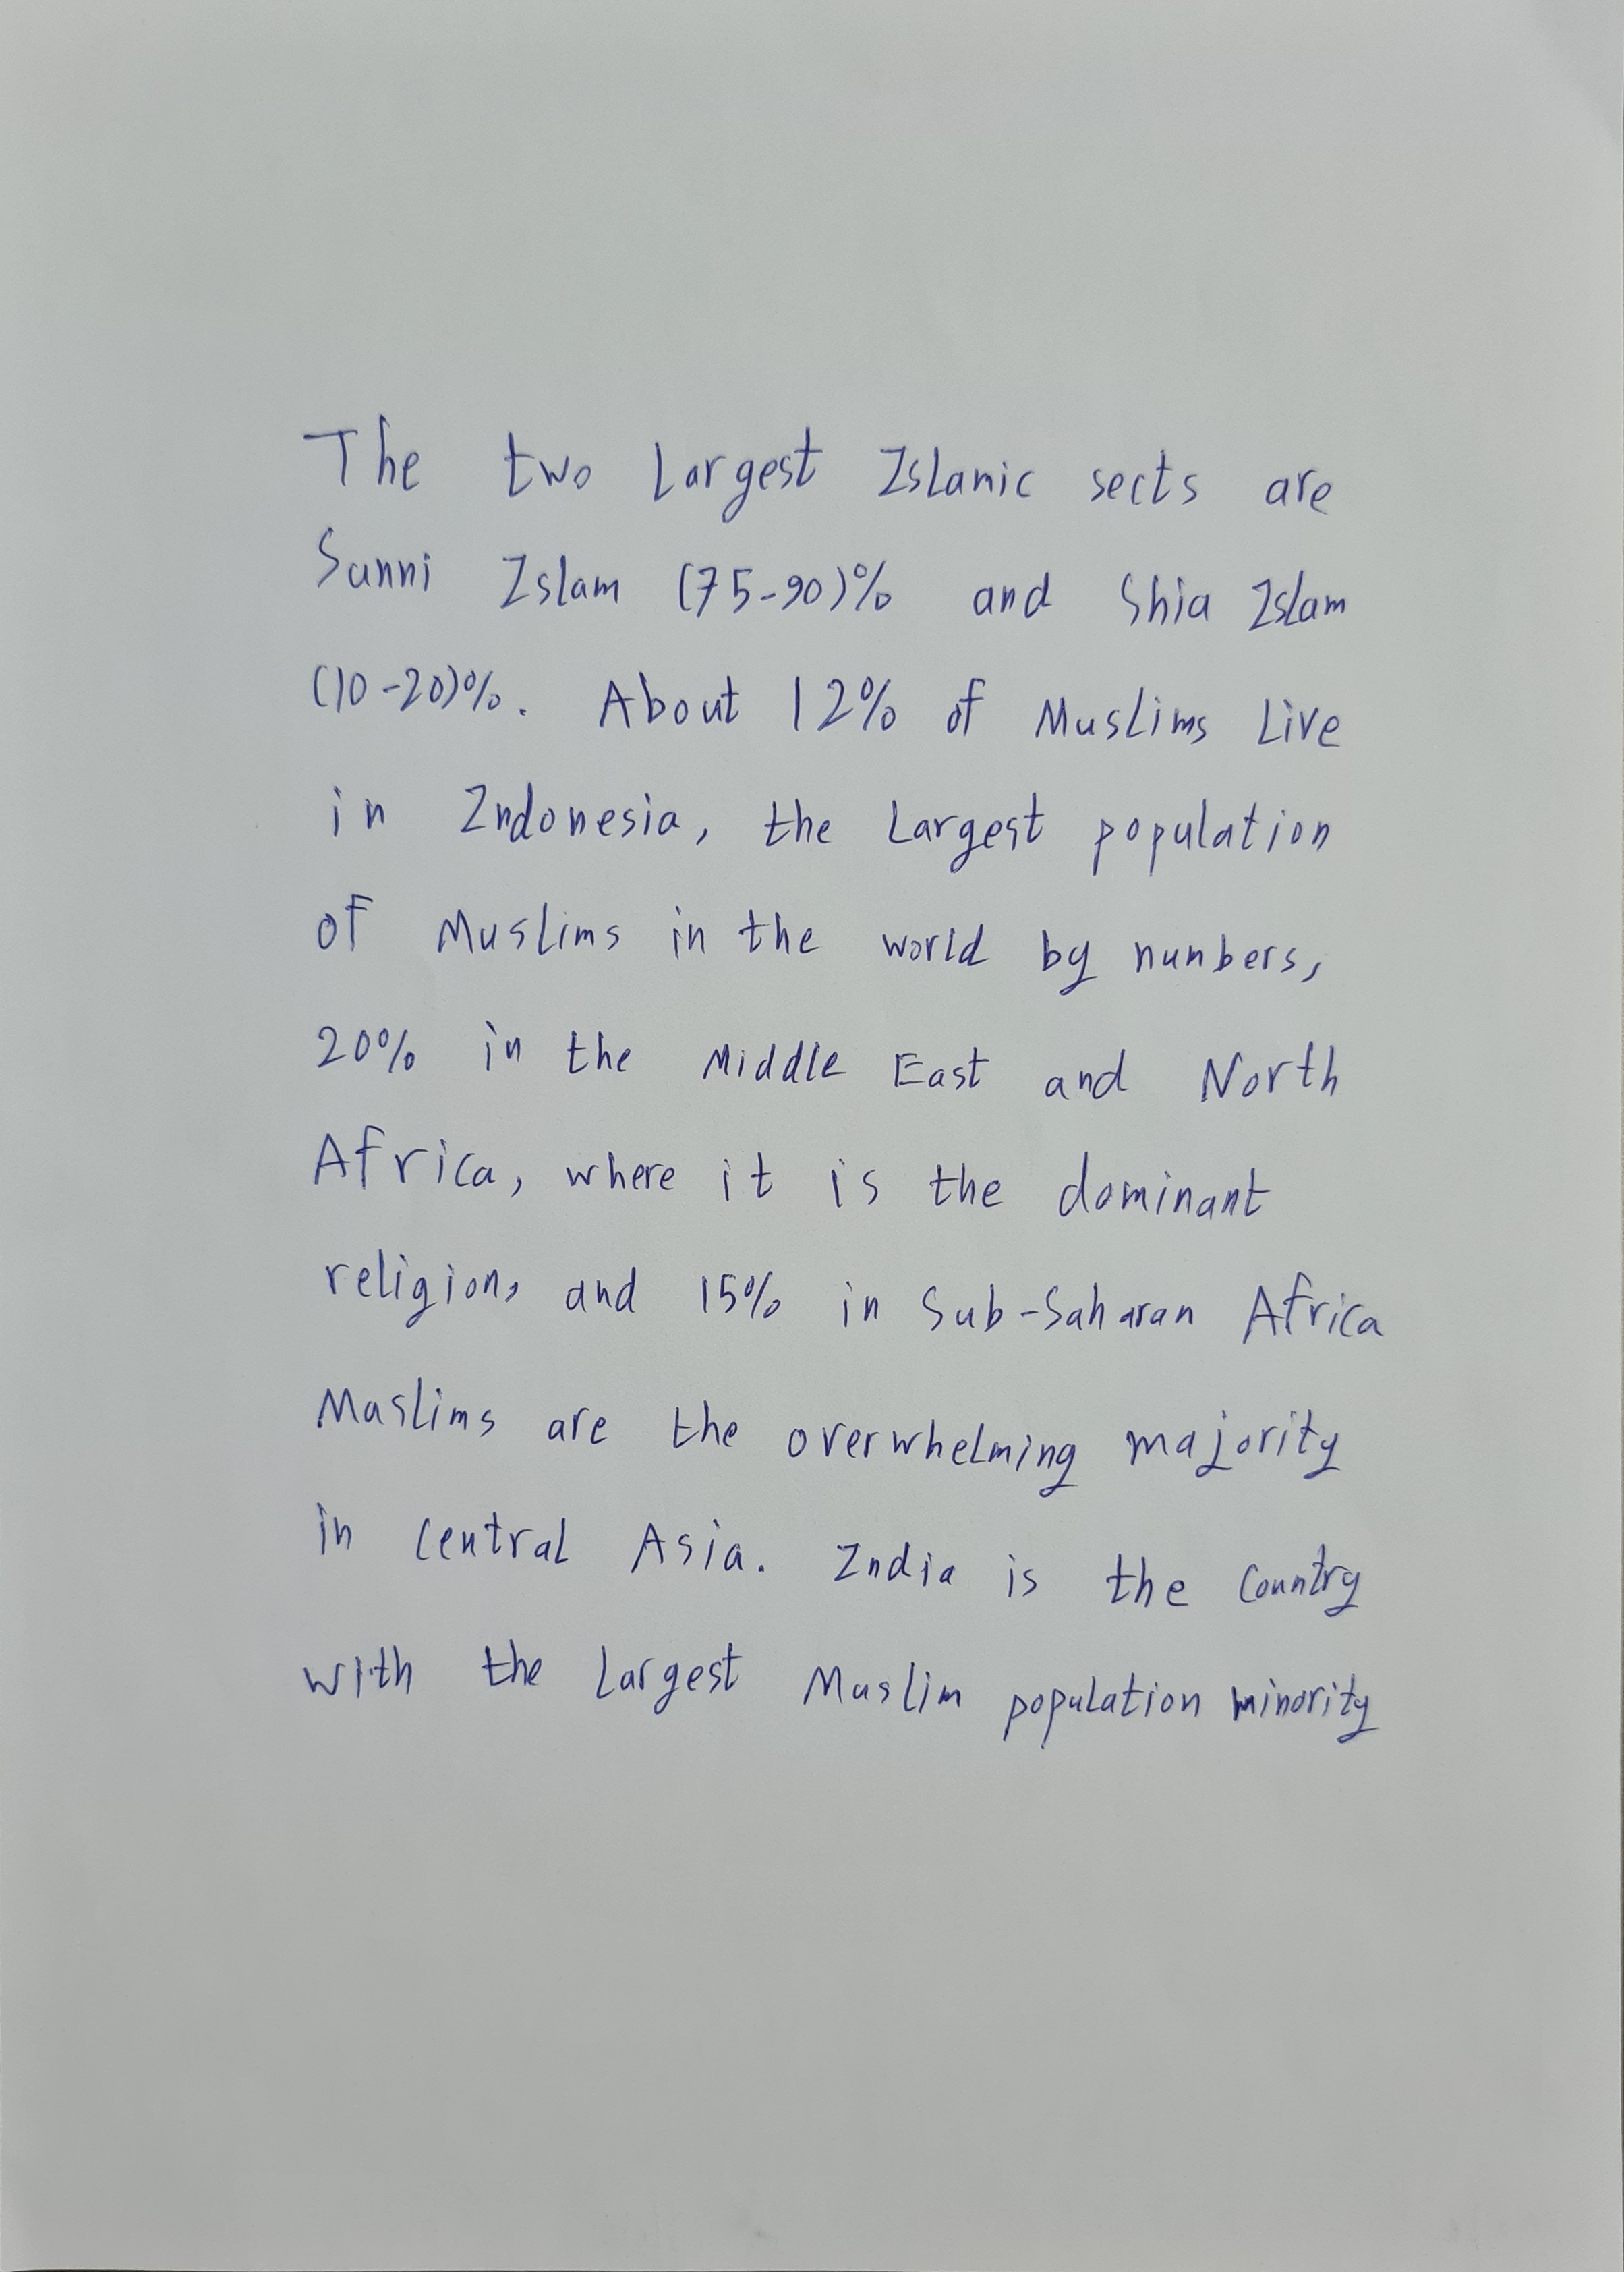 The two Largest Islamic sects are
Sunni Islam (75-90)% and Shia Islam
(10-20)%. About 12% of Muslims Live
in Indonesia, the Largest population
of Muslims in the world by numbers,
20% in the Middle East and North
Africa, where it is the dominant
religion, and 15% in Sub-Saharan Africa
Muslims are the overwhelming majority
in central Asia. India is the country
with the Largest Muslim population minority